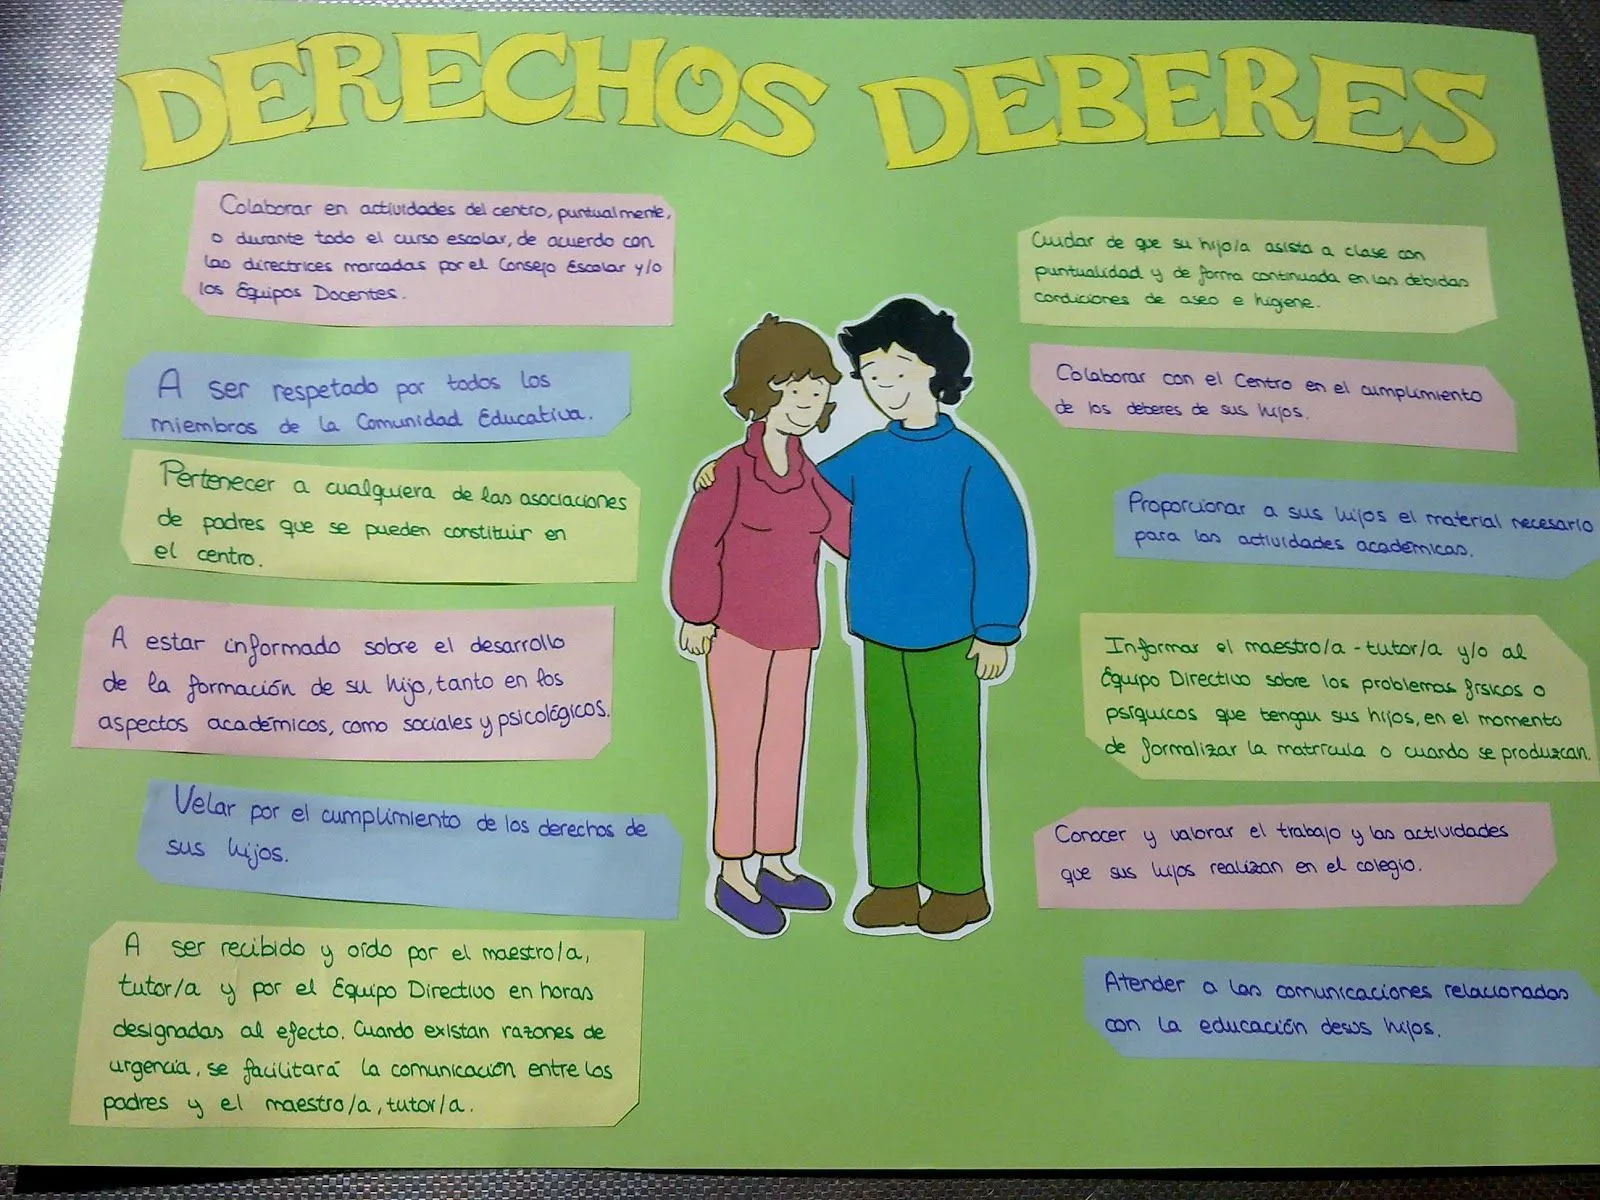 DERECHOS DEBERES
Colaborar en actividades del centro, puntualmente,
o durante todo el curso escolar, de acuerdo con
las directrices marcadas por el Consejo Escolar y/o
los Equipos Docentes.
A ser respetado por todos los
miembros de la Comunidad Educativa.
Pertenecer a cualquiera de las asociaciones
de padres que se pueden constituir en
el centro.
A estar informado sobre el desarrollo
de la formación de su hijo, tanto en los
aspectos académicos, como sociales y psicológicos.
Velar por el cumplimiento de los derechos de
sus hijos.
A ser recibido y oído por el maestro/a,
tutor/a y por el Equipo Directivo en horas
designadas al efecto. Cuando existan razones de
urgencia, se facilitará la comunicación entre los
padres y el maestro/a, tutor/a.
Cuidar de que su hijo/a asista a clase con
puntualidad y de forma continuada en las debidas
condiciones de aseo e higiene.
Colaborar con el Centro en el cumplimiento
de los deberes de sus hijos.
Proporcionar a sus hijos el material necesario
para las actividades académicas.
Informar el maestro/a - tutor/a y/o al
Equipo Directivo sobre los problemas físicos o
psíquicos que tengan sus hijos, en el momento
de formalizar la matrícula o cuando se produzcan.
Conocer y valorar el trabajo y las actividades
que sus hijos realizan en el colegio.
Atender a las comunicaciones relacionadas
con la educación desus hijos.